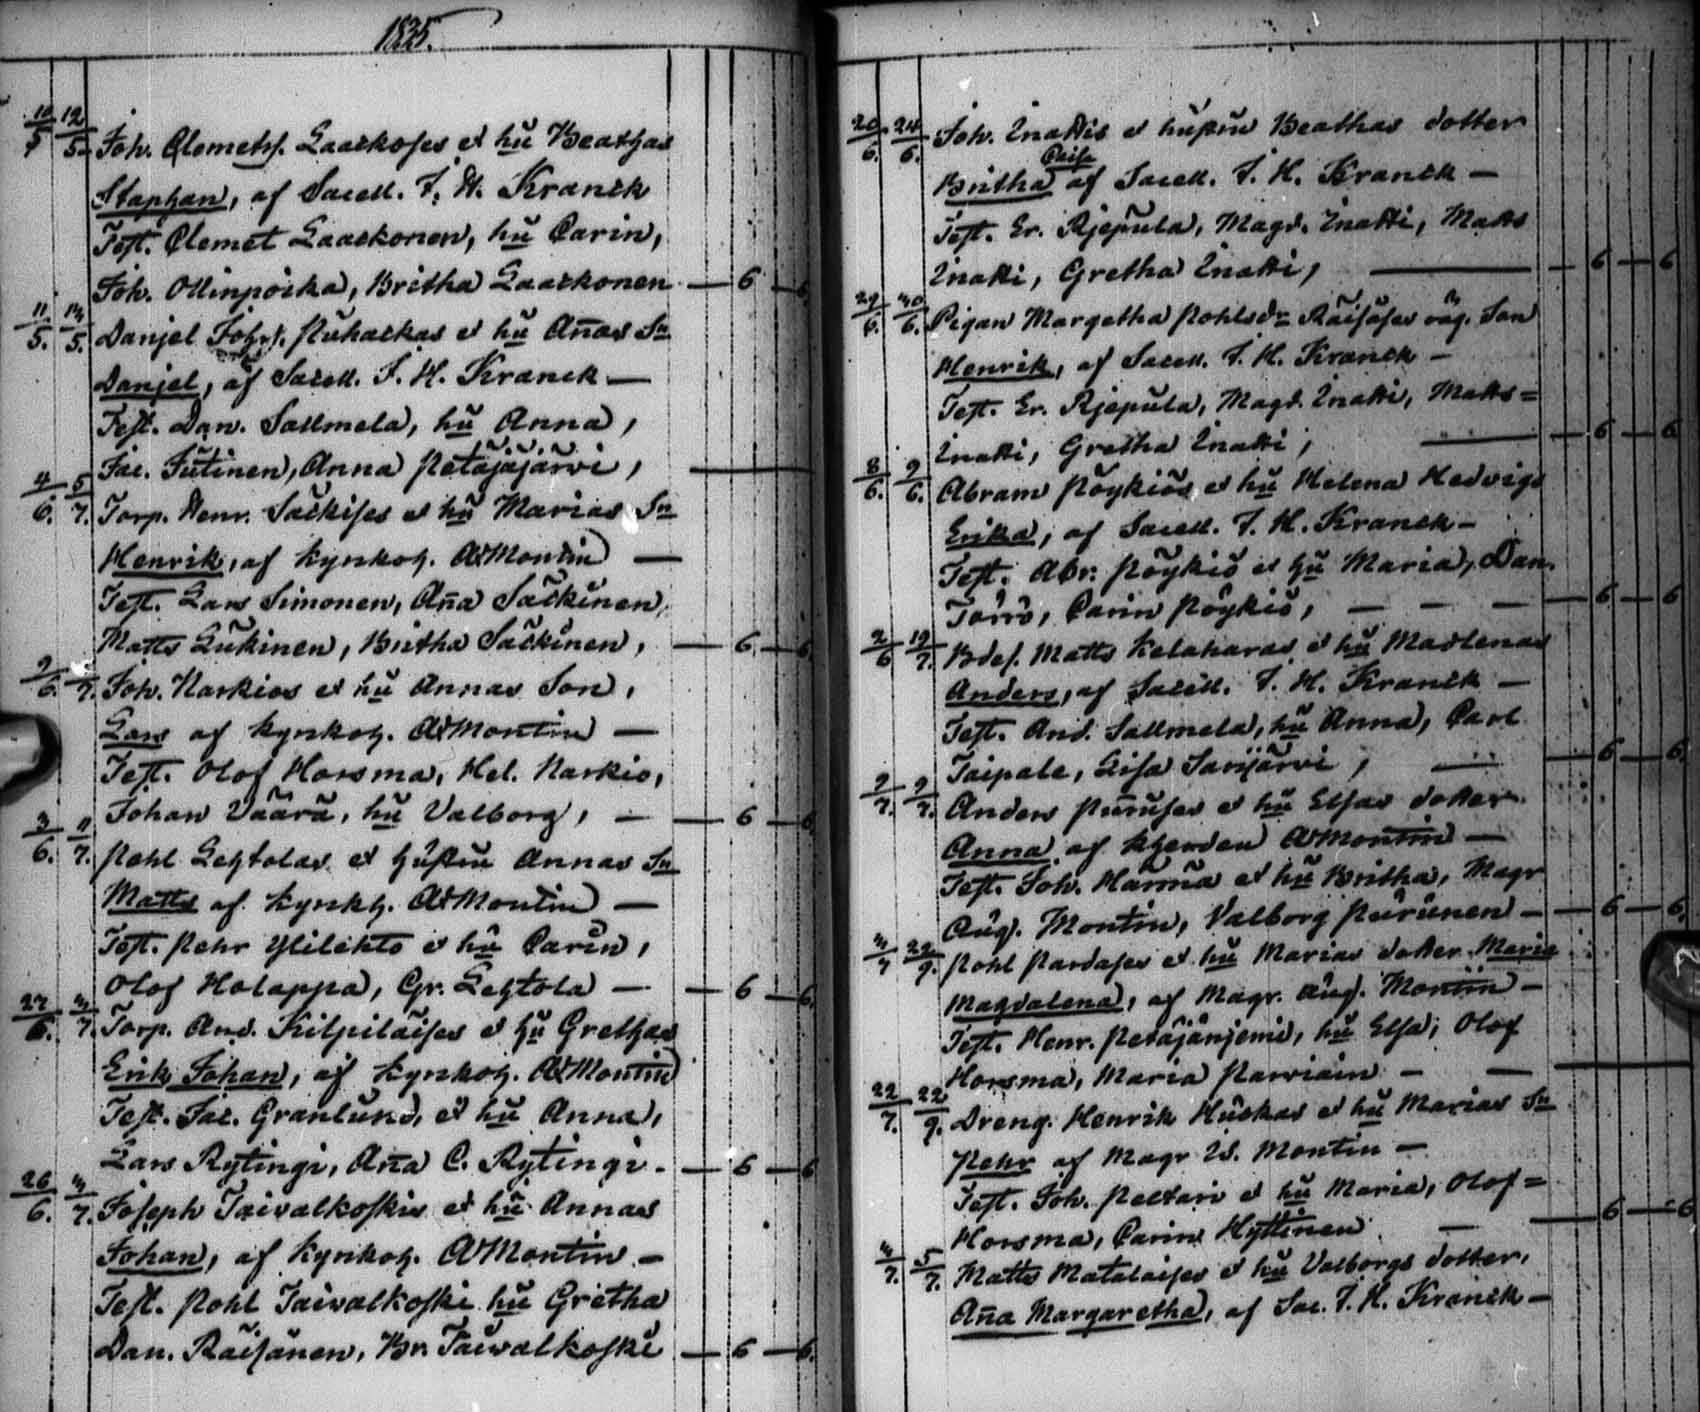 1835.
10/5 12/5 Joh. Clemetss. Laackoses et hū Beathas
Staphan, af Sacell. J. H. Kranck
Test. Clemet Laackonen, hū Carin,
Joh. Ollinpoika, Britha Laackonen — 6 — 6
11/5. 14/5. Danjel Johss. Puhackas et hū Annas Sn
Danjel, af Sacell. J. H. Kranck —
Test. Dan. Sallmela, hū Anna,
Jac. Jutinen, Anna Petäjäjärvi, —
4/6. 5/7. Torp. Henr. Säckises et hū Marias Sn
Henrik, af kyrkoh. A Montin —
Test. Lars Simonen, Aña Säckinen,
Matts Lukinen, Britha Säckinen, — 6 — 6
9/6. /7. Joh. Narkios et hū Annas Son,
Lars af kyrkoh. A Montin —
Test. Olof Horsma, Hel. Narkio,
Johan Väärä, hū Valborg, — — 6 — 6
3/6. 11/7. Pehl Lehtolas et hustru Annas Sn
Matts af kyrkh. A Montin —
Test. Pehr Ylilehto et hū Carin,
Olof Holappa, Gr. Lehtola — — 6 — 6
27/6. /7. Torp. And. Kilpiläises et hū Grethas
Erik Johan, af kyrkoh. A Montin
Test. Jac. Granlund, et hū Anna,
Lars Rytingi, Aña C. Rytingi. — 6 — 6
26/6. /7. Joseph Taivalkoskis et hū Annas
Johan, af kyrkoh. A Montin. —
Test. Pohl Taivalkoski hū Gretha
Dan. Räisänen, Br. Taivalkoski — 6 — 6.
20/6. 24/6. Joh. Inattis et hustru Beathas dotter
Caisa
Britha af Sacell. J. H. Kranck —
Test. Er. Rjepula, Magd. Inatti, Matts
Inatti, Gretha Inatti, — 6 — 6
29/6. 30/6. Pigan Margetha Pohlsdr Räisäses oäg. Son
Henrik, af Sacell. J. H. Kranck —
Test. Er. Rjepula, Magd. Inatti, Matts=
Inatti, Gretha Inatti, — 6 — 6
8/6. 9/6. Abram Pöykiös et hū Helena Hedvigs
Erika, af Sacell. J. H. Kranck —
Test. Abr. Pöykiö et hū Maria, Dan.
Törrö, Carin Pöykiö, — — — 6 — 6
2/6 19/7. Bdes. Matts Kelaharas et hū Madlenas
Anders, af Sacell. J. H. Kranck —
Test. And. Sallmela, hū Anna, Carl
Taipale, Lisa Sarijärvi, — 6 — 6.
7/7. 9/7. Anders Puruses et hū Elsas dotter
Anna af kherden A Montin —
Test. Joh. Harma et hū Britha, Magr
Aug. Montin, Valborg Purunen — 6 — 6.
/7 22/9. Pohl Pardases et hū Marias dotter Maria
Magdalena, af Magr. Aug. Montin —
Test. Henr. Petäjänjemi, hū Elsa, Olof
Horsma, Maria Parviain — —
22/7. 22/9. Dreng. Henrik Huskas et hū Marias Sn
Pehr af Magr Is. Montin —
Test. Joh. Peltari et hū Maria, Olof=
Horsma, Carin Hyttinen — — 6 — 6
/7. 5/7. Matts Matalaises et hū Valborgs dotter,
Aña Margaretha, af Sac. J. H. Kranck —